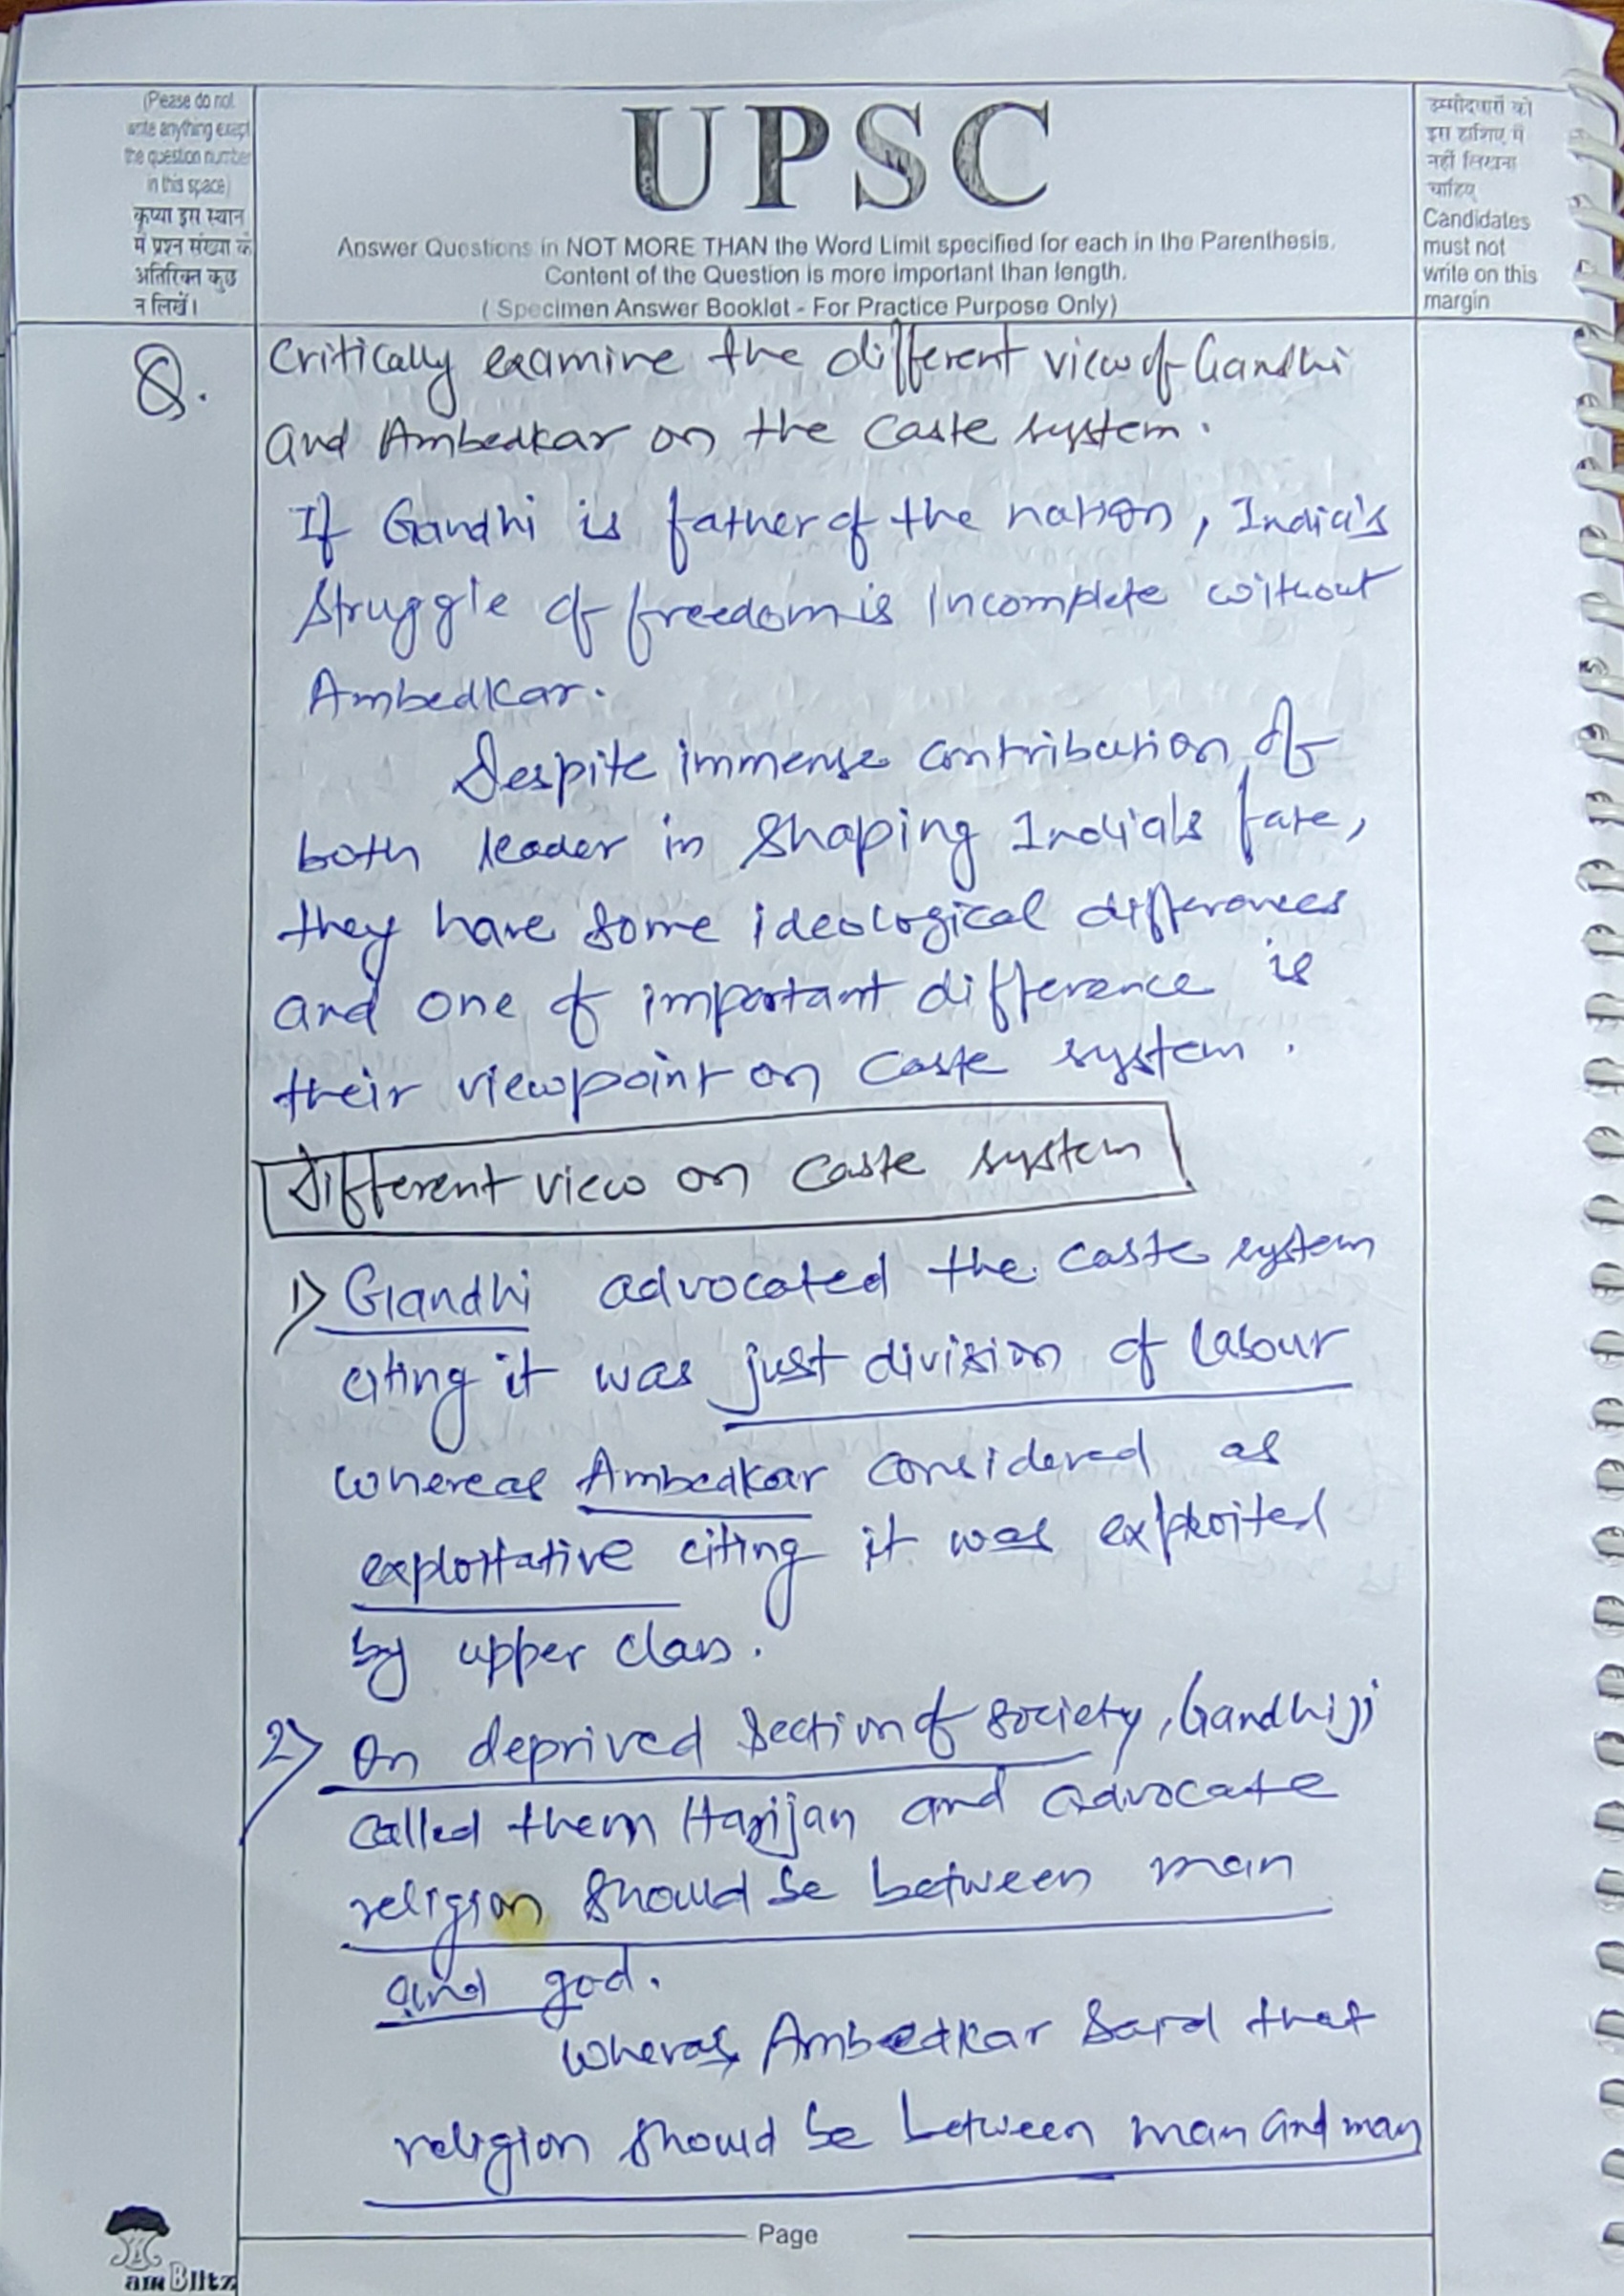 (Please do not
write anything exept
the question number
in this space)
कृप्या इस स्थान
में प्रश्न संख्या के
अतिरिक्त कुछ
न लिखें।
UPSC
Answer Questions in NOT MORE THAN the Word Limit specified for each in the Parenthesis.
Content of the Question is more important than length.
( Specimen Answer Booklet - For Practice Purpose Only)
उम्मीदवारों को
इस हाशिए में
नहीं लिखना
चाहिए
Candidates
must not
write on this
margin
Q. Critically examine the different view of Gandhi
and Ambedkar on the caste system.
If Gandhi is father of the nation, India's
struggle of freedom is incomplete without
Ambedkar.
Despite immense contribution of
both leader in shaping India's fate,
they have some ideological differences
and one of important difference is
their viewpoint on caste system.
Different view on caste system
1) Gandhi advocated the caste system
citing it was just division of labour
whereas Ambedkar considered as
exploitative citing it was exploited
by upper class.
2) On deprived section of society, Gandhiji
called them Harijan and advocate
religion should be between man
and god.
Wheras, Ambedkar said that
religion should be between man and man
Page
am Blitz